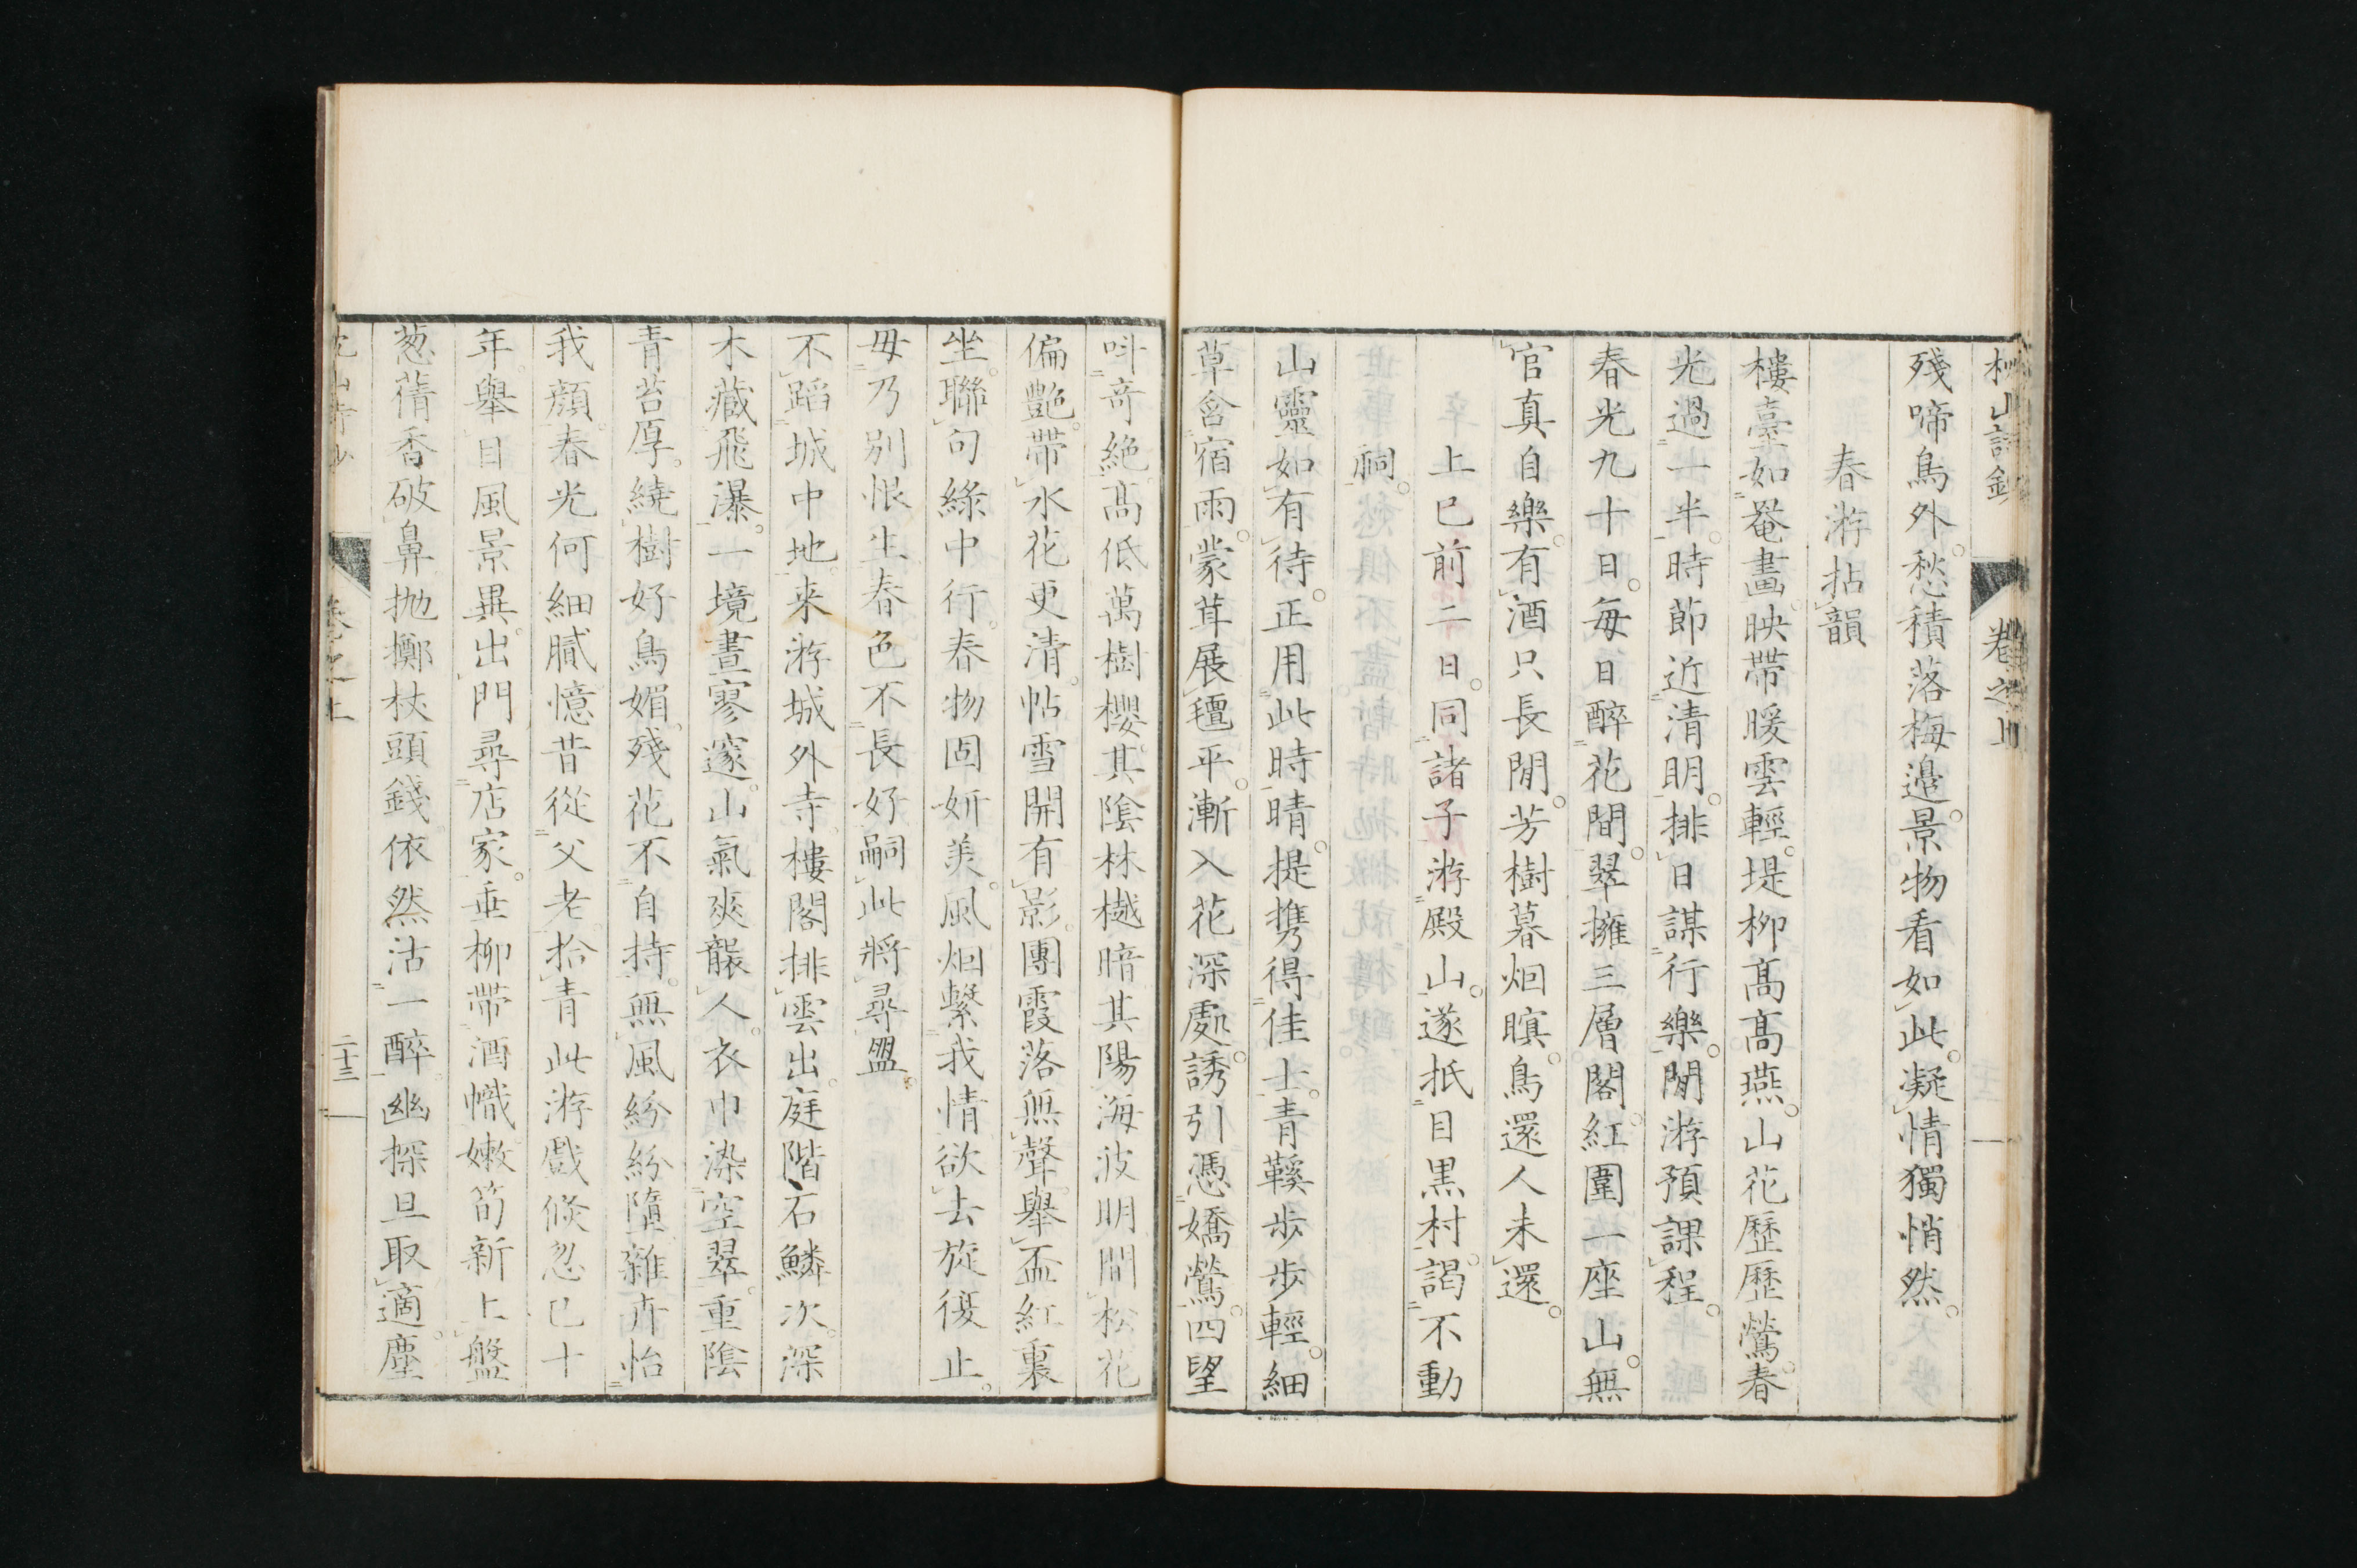 山詩鈔 卷之上
殘啼鳥外愁積落梅邊景物看如此凝情獨悄然
春游拈韻
樓臺如罨畫映帶暖雲輕堤柳髙髙燕山花歷歷鶯春
光過一半時節近清明排日謀行樂閒游預課程
春光九十日每日醉花間翠擁三層閣紅圍一座山無
官真自樂有酒只長閒芳樹暮烟暝鳥還人未還
上巳前二日同諸子游殿山遂抵目黒村謁不動
祠
山靈如有待正用此時晴提携得佳士青鞵步步輕細
草含宿雨蒙茸展氊平漸入花深處誘引憑嬌鶯四望
呌奇絶髙低萬樹櫻其陰林樾暗其陽海波明間松花
偏艷帶水花更清帖雪開有影團霞落無聲舉盃紅裏
坐聯句綠中行春物固妍美風烟繫我情欲去旋復止
毋乃別恨生春色不長好嗣此將尋盟
不蹈城中地来游城外寺樓閣排雲出庭階石鱗次深
木藏飛瀑一境晝寥邃山氣爽襲人衣巾染空翠重陰
青苔厚繞樹好鳥媚殘花不自持無風紛紛墮雜卉怡
我顔春光何細膩憶昔從父老拾青此游戲倐忽已十
年舉目風景異出門尋店家垂柳帶酒幟嫩筍新上盤
葱蒨香破鼻抛擲杖頭錢依然沽一醉幽探旦取適塵
山詩鈔 卷之上 二十三